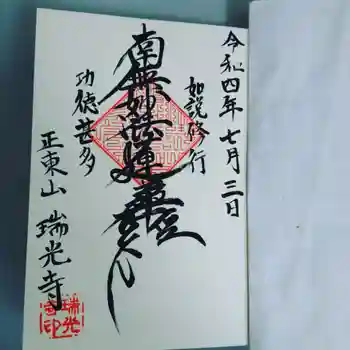 令和四年七月三日
如説修行
南無妙法蓮華経
功徳甚多
正東山 瑞光寺
瑞光寺印